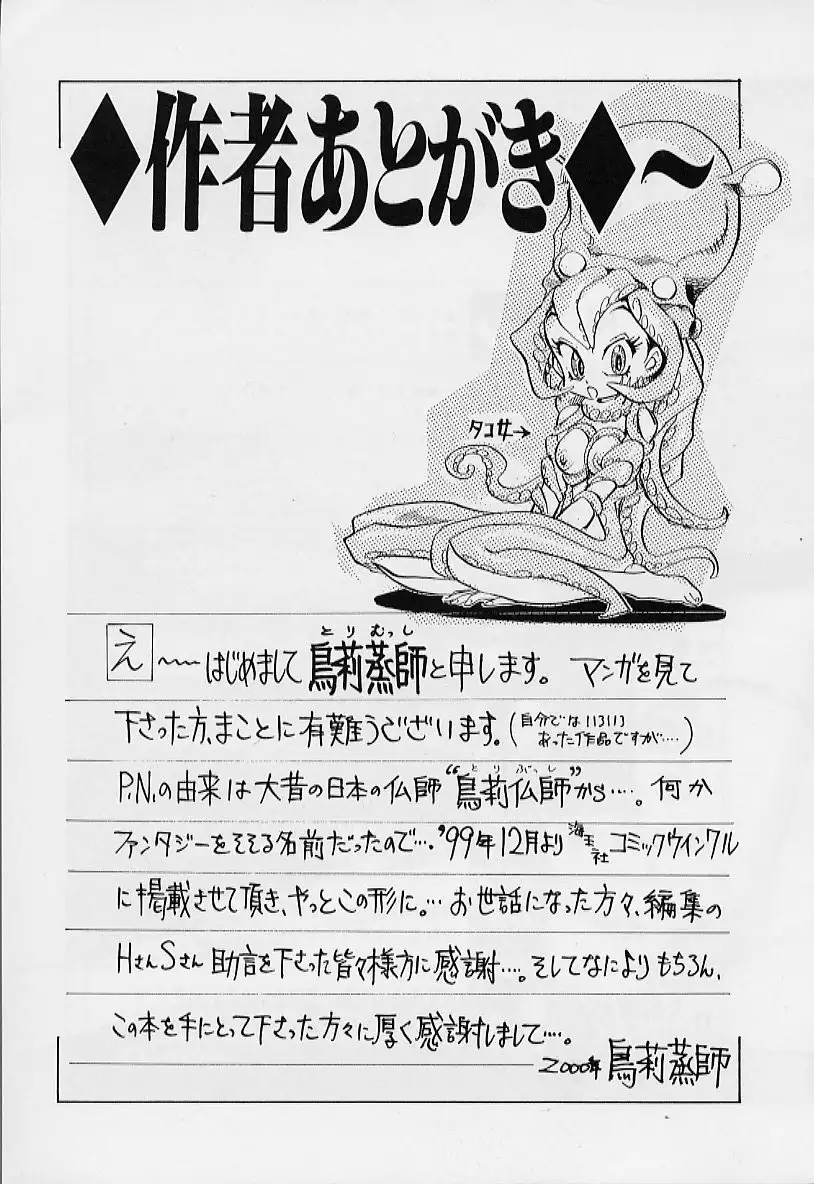 ◆作者あとがき◆〜
タコ女→
とりむっし
え〜〜はじめまして鳥莉蒸師と申します。マンガを見て
下さった方、まことに有難うございます。(自分ではいろいろあった作品ですが‥‥)
とりぶっし
P.N.の由来は大昔の日本の仏師“鳥莉仏師”から‥‥。何か
ファンタジーをそそる名前だったので‥‥'99年12月より海王社コミックウインクル
に掲載させて頂き、やっとこの形に。‥お世話になった方々、編集の
HさんSさん助言を下さった皆々様方に感謝‥‥。そしてなによりもちろん、
この本を手にとって下さった方々に厚く感謝しまして‥‥。
2000年 鳥莉蒸師